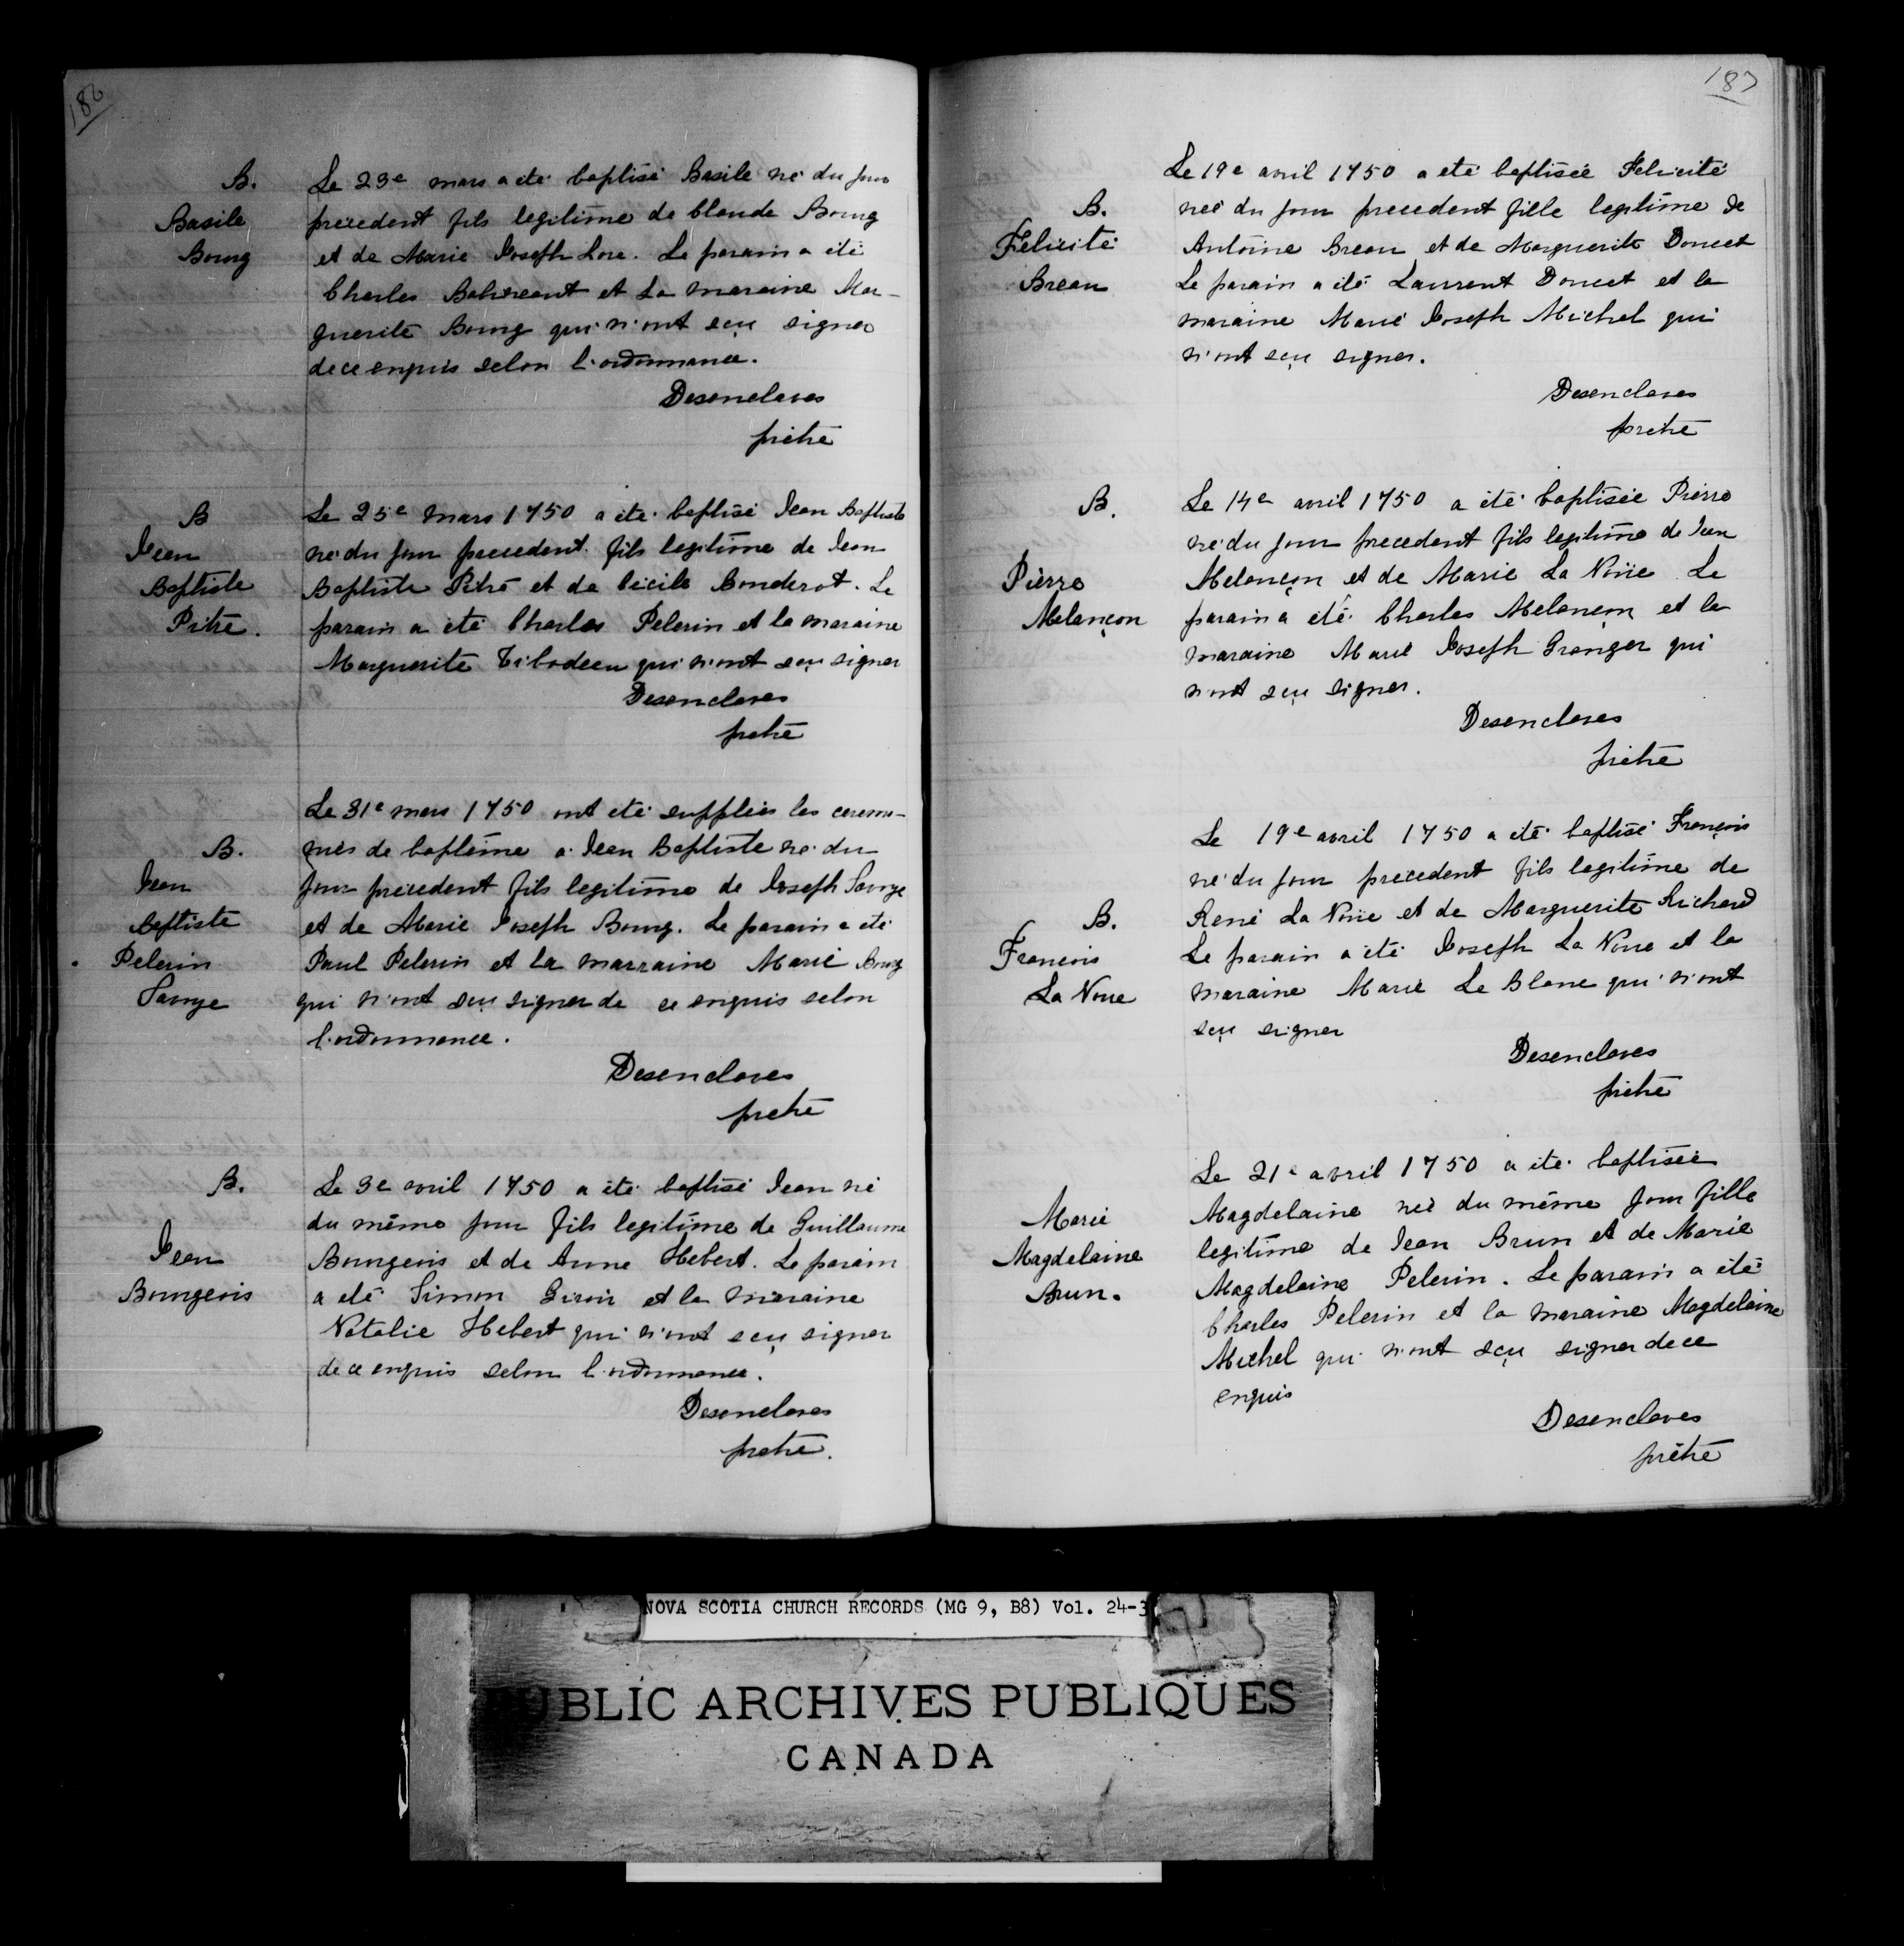 186
B.
Basile
Bourg
Le 23e mars a été baptisé Basile né du jour
précedent fils legitime de Claude Bourg
et de Marie Joseph Lore. Le parain a été
Charles et La maraine Mar-
guerite Bourg qui n'ont sçu signer
de ce enquis selon l'ordonnance.
Desenclaves
prêtre
B
Jean
Baptiste
Pitre.
Le 25e mars 1750 a été baptisé Jean Baptiste
né du jour precedent fils legitime de Jean
Baptiste Pitre et de Cécile Bouderot. Le
parain a été Charles Pelerin et la maraine
Marguerite Tibodeau qui n'ont sçu signer
Desenclaves
prêtre
B.
Jean
Baptiste
Pelerin
Savoye
Le 31e mars 1750 ont été supplées les ceremo-
nies de baptême a Jean Baptiste né du
jour précedent fils legitime de Joseph Savoye
et de Marie Joseph Bourg. Le parain a été
Paul Pelerin et la marraine Marie Bourg
qui n'ont sçu signer de ce enquis selon
l'ordonnance.
Desenclaves
prêtre
B.
Jean
Bourgeois
Le 3e avril 1750 a été baptisé Jean né
du même jour fils legitime de Guillaume
Bourgeois et de Anne Hebert. Le parain
a été Simon Giroir et la maraine
Natalie Hebert qui n'ont sçu signer
de ce enquis selon l'ordonnance.
Desenclaves
prêtre.
187
B.
Félicité
Breau
Le 19e avril 1750 a été baptisée Felicité
née du jour precedent fille legitime de
Antoine Breau et de Marguerite Doucet
Le parain a été Laurent Doucet et la
maraine Marie Joseph Michel qui
n'ont sçu signer.
Desenclaves
prêtre
B.
Pierre
Melançon
Le 14e avril 1750 a été baptisée Pierre
né du jour precedent fils legitime de Jean
Melançon et de Marie La Noüe Le
parain a été Charles Melançon et la
maraine Marie Joseph Granger qui
n'ont sçu signer.
Desenclaves
prêtre
B.
François
La Noue
Le 19e avril 1750 a été baptisé François
né du jour precedent fils legitime de
René La Noüe et de Marguerite Richard
Le parain a été Joseph La Noue et la
maraine Marie Le Blanc qui n'ont
sçu signer
Desenclaves
prêtre
Marie
Magdelaine
Brun.
Le 21e avril 1750 a été baptisée
Magdelaine née du même jour fille
legitime de Jean Brun et de Marie
Magdelaine Pelerin. Le parain a été
Charles Pelerin et la maraine Magdelaine
Michel qui n'ont sçu signer de ce
enquis
Desenclaves
prêtre
NOVA SCOTIA CHURCH RECORDS (MG 9, B8) Vol. 24-3
PUBLIC ARCHIVES PUBLIQUES
CANADA